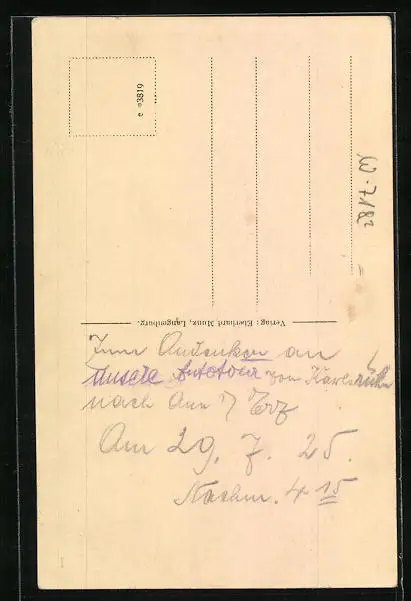 e 03819
W. 7182
Verlag: Eberhard Munz, Langenburg.
Zum Andenken an
unsere Autotour von Karlsruhe
nach
Am 29. 7. 25.
Nachm. 4 15